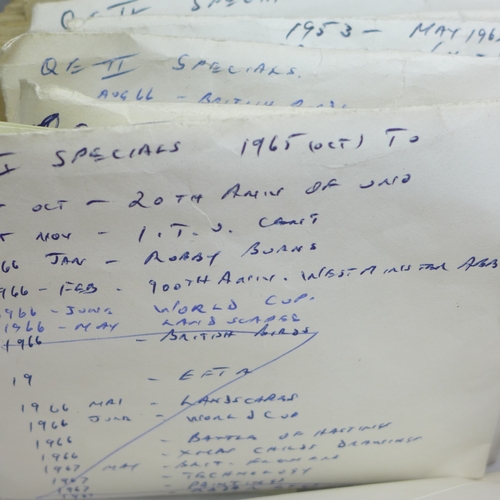 QE II SPECI
1953 - MAY 196
QE II SPECIALS.
AUG 66 - BRITISH BIRDS
I SPECIALS 1965 (OCT) TO
OCT - 20TH ANIV OF UNO
NOV - I.T.U. CENT
66 JAN - ROBBY BURNS
966 - FEB - 900TH ANIV. WESTMINSTER ABB
1966 - JUNE WORLD CUP.
1966 - MAY LANDSCAPES
1966 - BRITISH BIRDS
19 - EFTA
1966 MAI - LANDSCAPES
1966 JUNE - WORLD CUP
1966 - BATTLE OF HASTINGS
1966 - XMAS CHILDS DRAWINGS
1967 MAY - BRIT. FLOWERS
1967 - TECHNOLOGY
1967